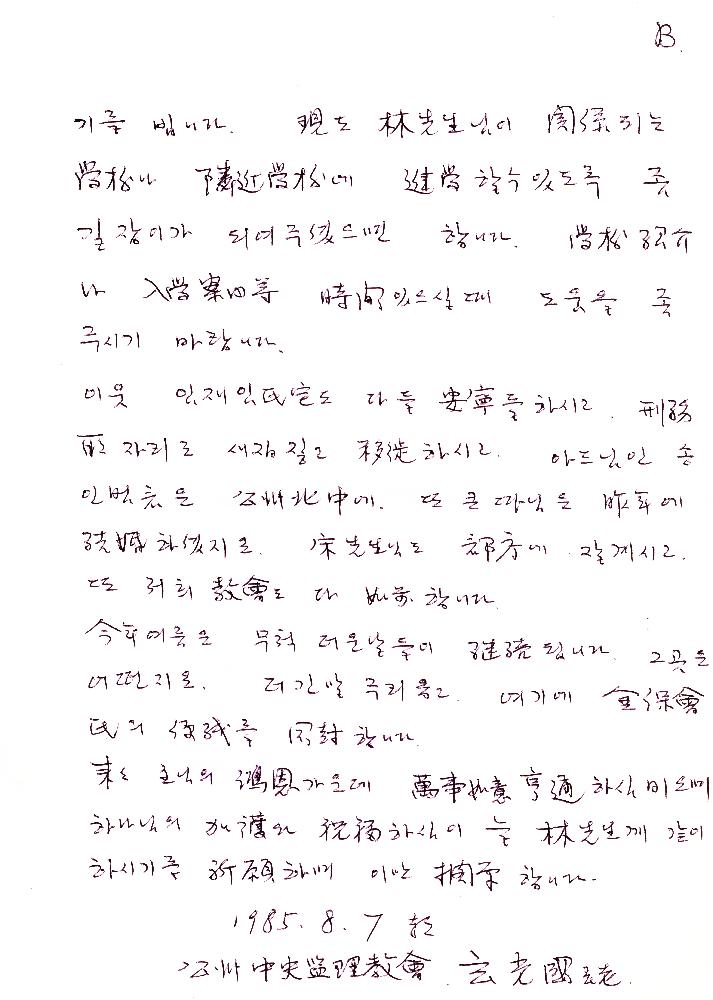 B.
기를 빕니다. 現도 林先生님이 関係되는
学校나 隣近学校에 進学할수있도록 좀
길잡이가 되여주셨으면 합니다. 学校紹介
나 入学案内等 時間있으실때 도움을 좀
주시기 바랍니다.
이웃 임재임氏宅도 다들 安寧들하시고.
자리로 새집짓고 移徙하시고. 아드님인 송
인범君은 公州北中에. 또 큰따님은 昨年에
結婚하셨지요. 宋先生님도 部方에 잘계시고.
또 저희 敎會도 다 如前합니다.
今年여름은 무척 더운날들이 継続됩니다. 그곳은
어떤지요. 더긴말 주리옵고. 여기에 金保會
氏의 便紙를 同封합니다.
主님의 鴻恩가운데 萬事如意亨通하심비오며
하나님의 加護와 祝福하심이 늘 林先生께 같이
하시기를 祈願하며 이만 摘筆합니다.
1985. 8. 7
公州中央監理敎會 玄光國